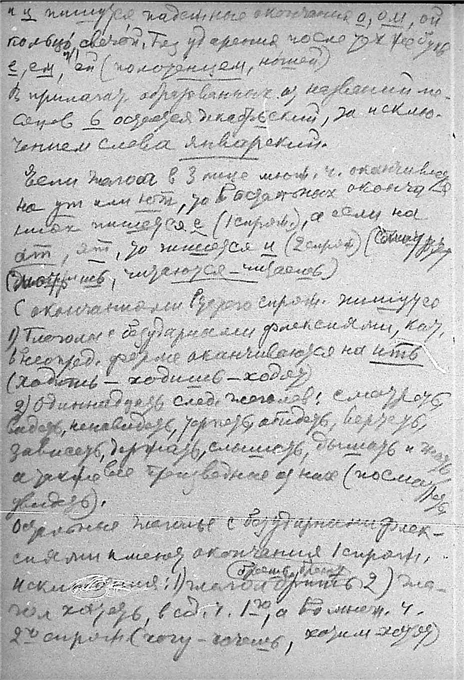 и ц пишутся падежные окончания о, ом, ой
кольцо, свечой. Без ударения после этих же букв
е, ем, ей (полотенцем, ношей)
В прилагат. образованных из названий ме-
сяцев ь остается декабрьский, за исклю-
чением слова январский.
Если глагол в 3 лице множ. ч. оканчивается
на ут или ют, то в остальных оконча-
ниях пишется е (1 спряж.), а если на
ат, ят, то пишется и (2 спряж)
читаются – читаешь)
С окончаниями второго спряж. пишутся
1) Глаголы с безударными флексиями, кот.
в неопред. форме оканчиваются на ить
(ходить – ходишь – ходят)
2) Одиннадцать след. глаголов: смотреть
видеть, ненавидеть, терпеть, обидеть, вертеть,
зависеть, держать, слышать, дышать и гнать
а также все производные из них (посмотреть,
увидеть).
Остальные глаголы с безударными флек-
сиями имеют окончания 1 спряж.
исключения: 1) глагол брить 2) гла-
гол хотеть, в ед. ч. 1го, а во множ. ч.
2го спряж (хочу – хочешь, хотим – хотят)